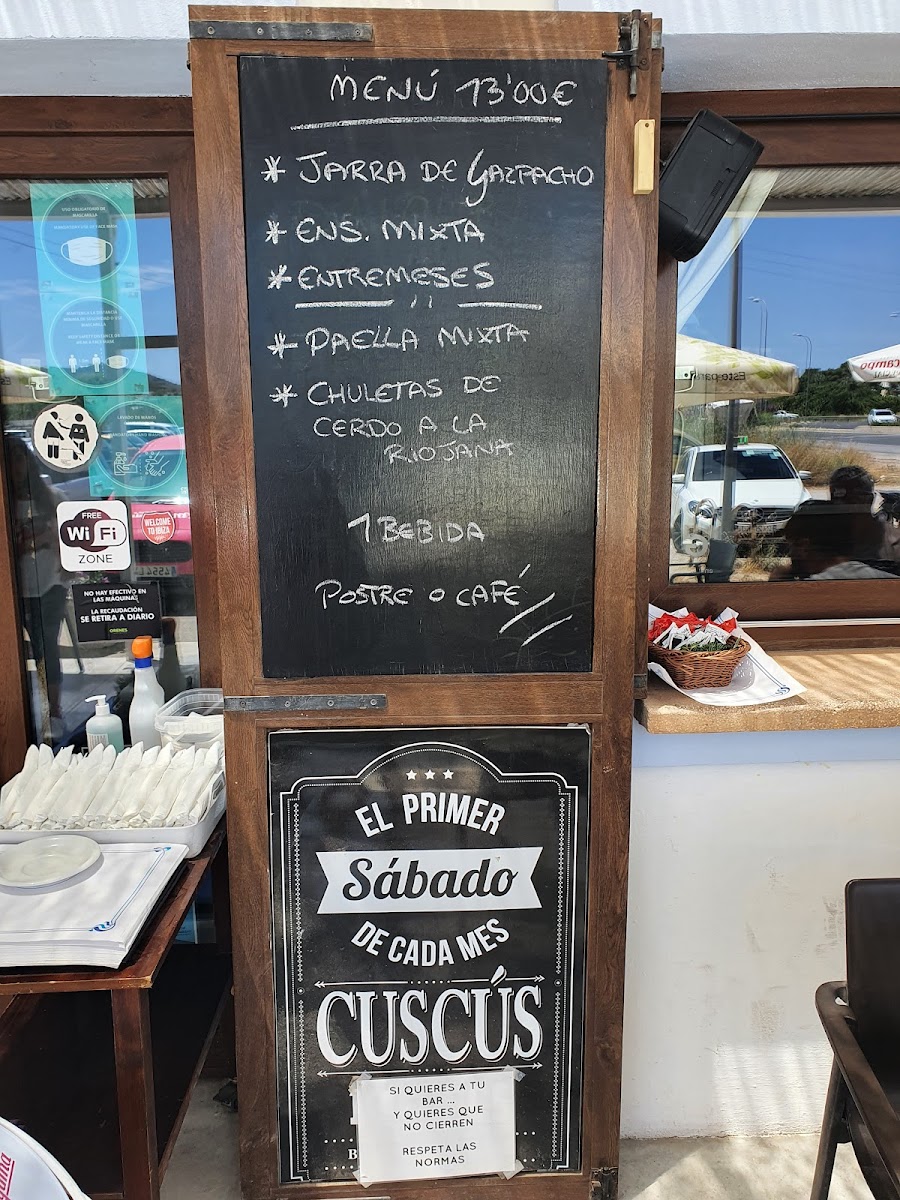 MENÚ 13'00€
* JARRA DE GAZPACHO
* ENS. MIXTA
* ENTREMESES
* PAELLA MIXTA
* CHULETAS DE
CERDO A LA
RIOJANA
1 BEBIDA
POSTRE O CAFÉ
EL PRIMER
Sábado
DE CADA MES
CUSCÚS
SI QUIERES A TU
BAR ...
Y QUIERES QUE
NO CIERREN
RESPETA LAS
NORMAS
USO OBLIGATORIO DE
MASCARILLA
LAVADO DE MANOS
FREE
Wi Fi
ZONE
WELCOME
TO IBIZA
NO HAY EFECTIVO EN
LAS MÁQUINAS
LA RECAUDACIÓN
SE RETIRA A DIARIO
ORENES
campo